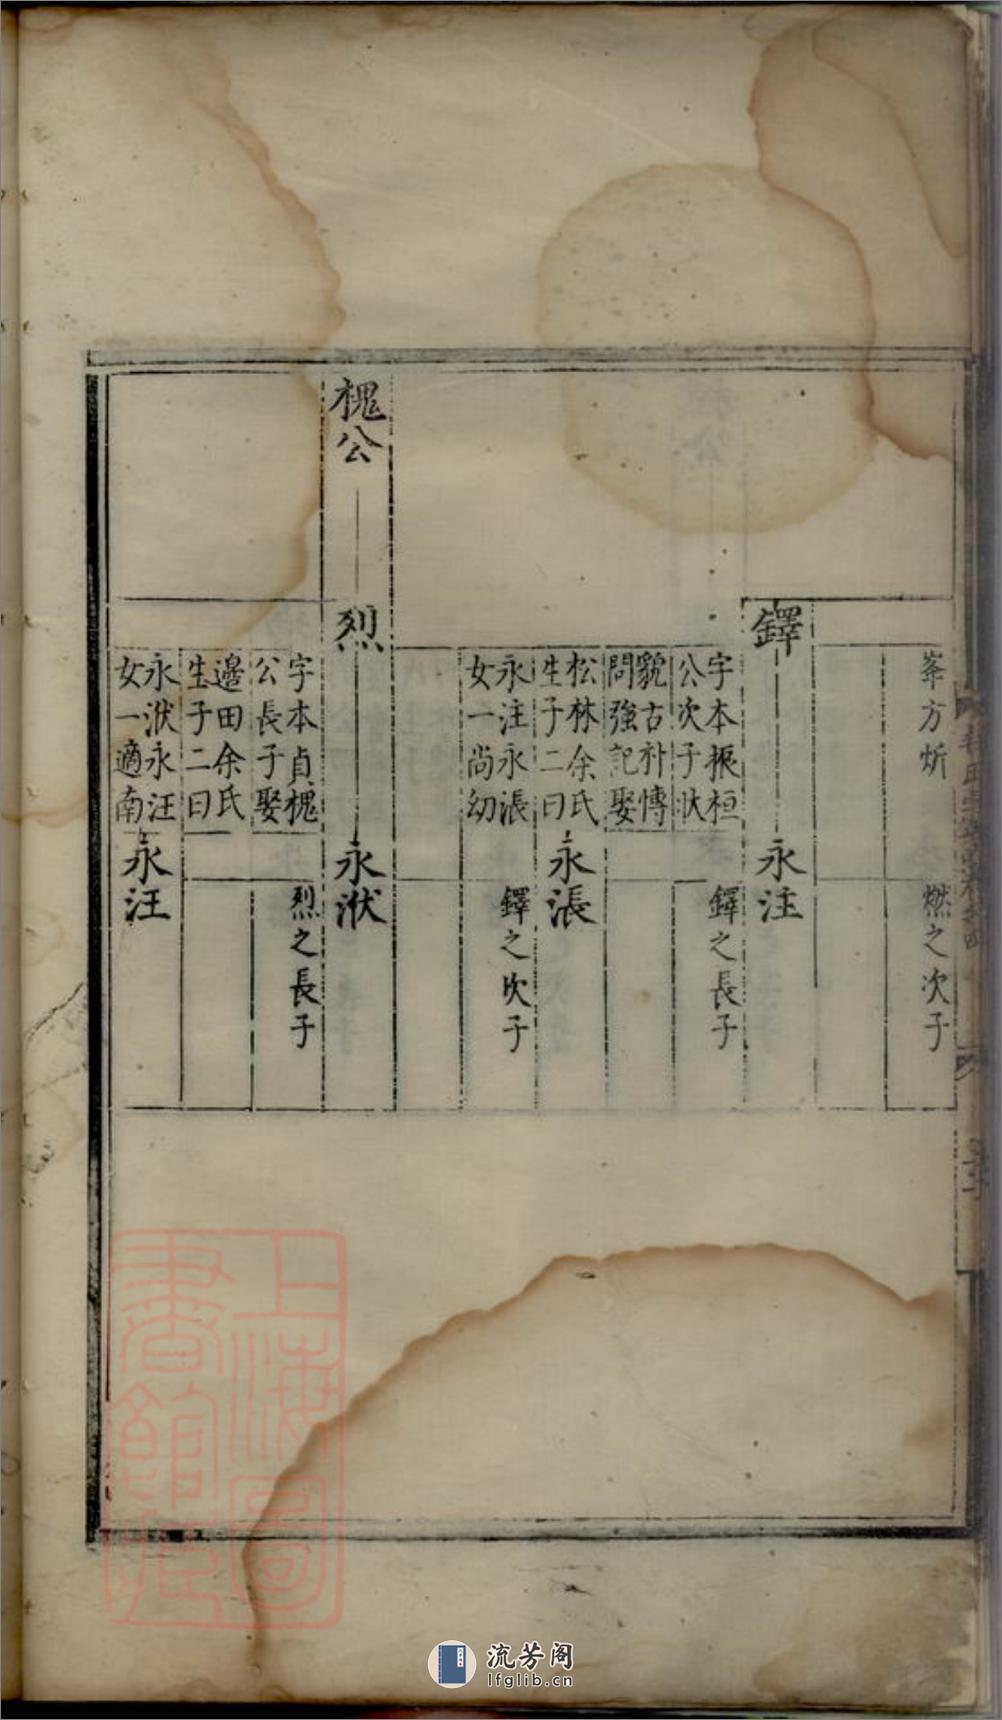 峯方炘
燃之次子
鐸
永注
字本振桓
公次子狀
鐸之長子
貌古朴愽
問強記娶
松林余氏
生子二曰
永漲
永注永漲
女一尚幼
鐸之次子
槐公
烈
永洑
字本貞槐
公長子娶
烈之長子
邉田余氏
生子二曰
永洑永汪
女一適南
永汪
上海圖
書館藏
流芳阁
lfglib.cn